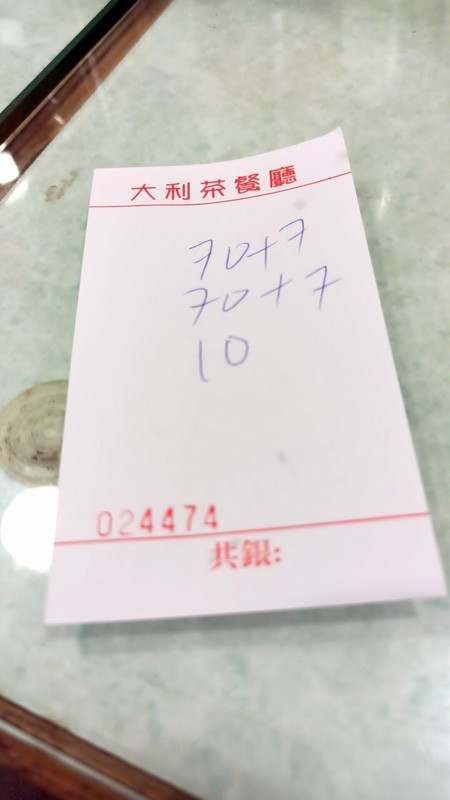 大利茶餐廳
70+7
70+7
10
024474
共銀: